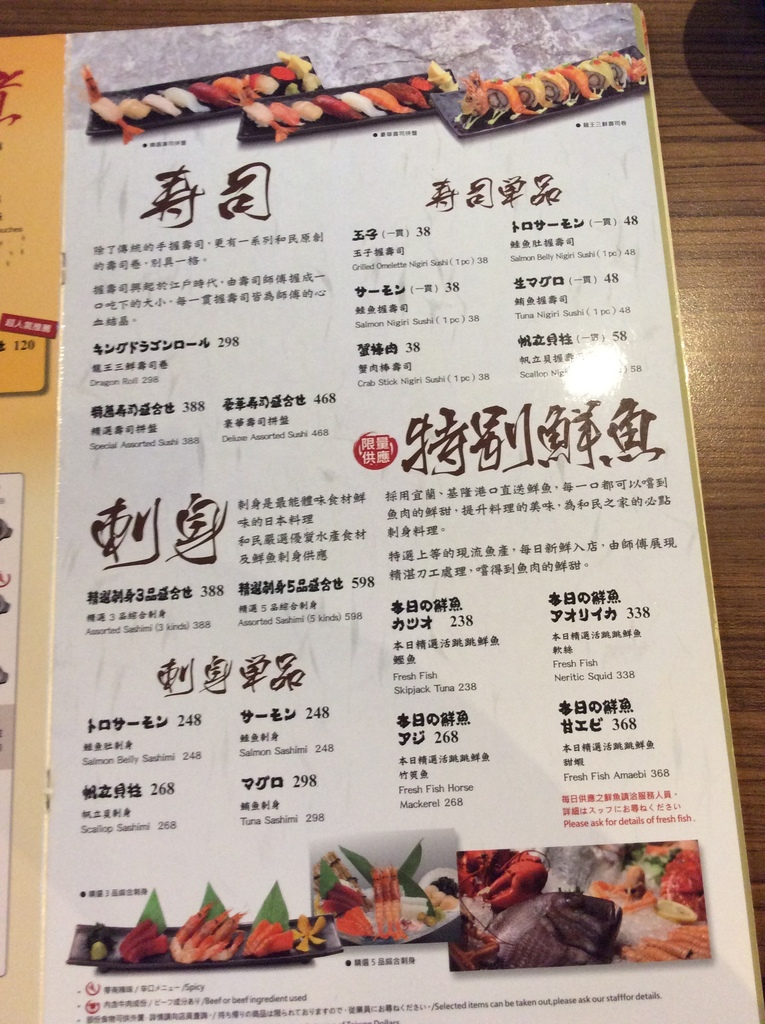 超人氣推薦
120
寿司
除了傳統的手握壽司，更有一系列和民原創
的壽司卷，別具一格。
握壽司興起於江戶時代，由壽司師傅握成一
口吃下的大小，每一貫握壽司皆為師傅的心
血結晶。
キングドラゴンロール 298
龍王三鮮壽司卷
Dragon Roll 298
精選寿司盛合せ 388
精選壽司拼盤
Special Assorted Sushi 388
豪華寿司盛合せ 468
豪華壽司拼盤
Deluxe Assorted Sushi 468
精選壽司拼盤
豪華壽司拼盤
龍王三鮮壽司卷
寿司単品
玉子 (一貫) 38
玉子握壽司
Grilled Omelette Nigiri Sushi ( 1 pc ) 38
トロサーモン (一貫) 48
鮭魚肚握壽司
Salmon Belly Nigiri Sushi ( 1 pc ) 48
サーモン (一貫) 38
鮭魚握壽司
Salmon Nigiri Sushi ( 1 pc ) 38
生マグロ (一貫) 48
鮪魚握壽司
Tuna Nigiri Sushi ( 1 pc ) 48
蟹棒肉 38
蟹肉棒壽司
Crab Stick Nigiri Sushi ( 1 pc ) 38
帆立貝柱 (一貫) 58
帆立貝握壽司
Scallop 58
刺身
刺身是最能體味食材鮮
味的日本料理
和民嚴選優質水產食材
及鮮魚刺身供應
精選刺身3品盛合せ 388
精選 3 品綜合刺身
Assorted Sashimi (3 kinds) 388
精選刺身5品盛合せ 598
精選 5 品綜合刺身
Assorted Sashimi (5 kinds) 598
刺身単品
トロサーモン 248
鮭魚肚刺身
Salmon Belly Sashimi 248
サーモン 248
鮭魚刺身
Salmon Sashimi 248
帆立貝柱 268
帆立貝刺身
Scallop Sashimi 268
マグロ 298
鮪魚刺身
Tuna Sashimi 298
限量
供應
特別鮮魚
採用宜蘭、基隆港口直送鮮魚，每一口都可以嚐到
魚肉的鮮甜，提升料理的美味，為和民之家的必點
刺身料理。
特選上等的現流魚產，每日新鮮入店，由師傅展現
精湛刀工處理，嚐得到魚肉的鮮甜。
本日の鮮魚
カツオ 238
本日精選活跳跳鮮魚
鰹魚
Fresh Fish
Skipjack Tuna 238
本日の鮮魚
アオリイカ 338
本日精選活跳跳鮮魚
軟絲
Fresh Fish
Neritic Squid 338
本日の鮮魚
アジ 268
本日精選活跳跳鮮魚
竹筴魚
Fresh Fish Horse
Mackerel 268
本日の鮮魚
甘エビ 368
本日精選活跳跳鮮魚
甜蝦
Fresh Fish Amaebi 368
每日供應之鮮魚請洽服務人員。
詳細はスッフにお尋ねください
Please ask for details of fresh fish .
精選 3 品綜合刺身
精選 5 品綜合刺身
帶有辣味 / 辛口メニュー /Spicy
內含牛肉成份 / ビーフ成分あり /Beef or beef ingredient used
部份食物可供外帶，詳情請向店員查詢。/ 持ち帰りの商品は限られておりますので、従業員にお尋ねください。/Selected items can be taken out,please ask our stafffor details.